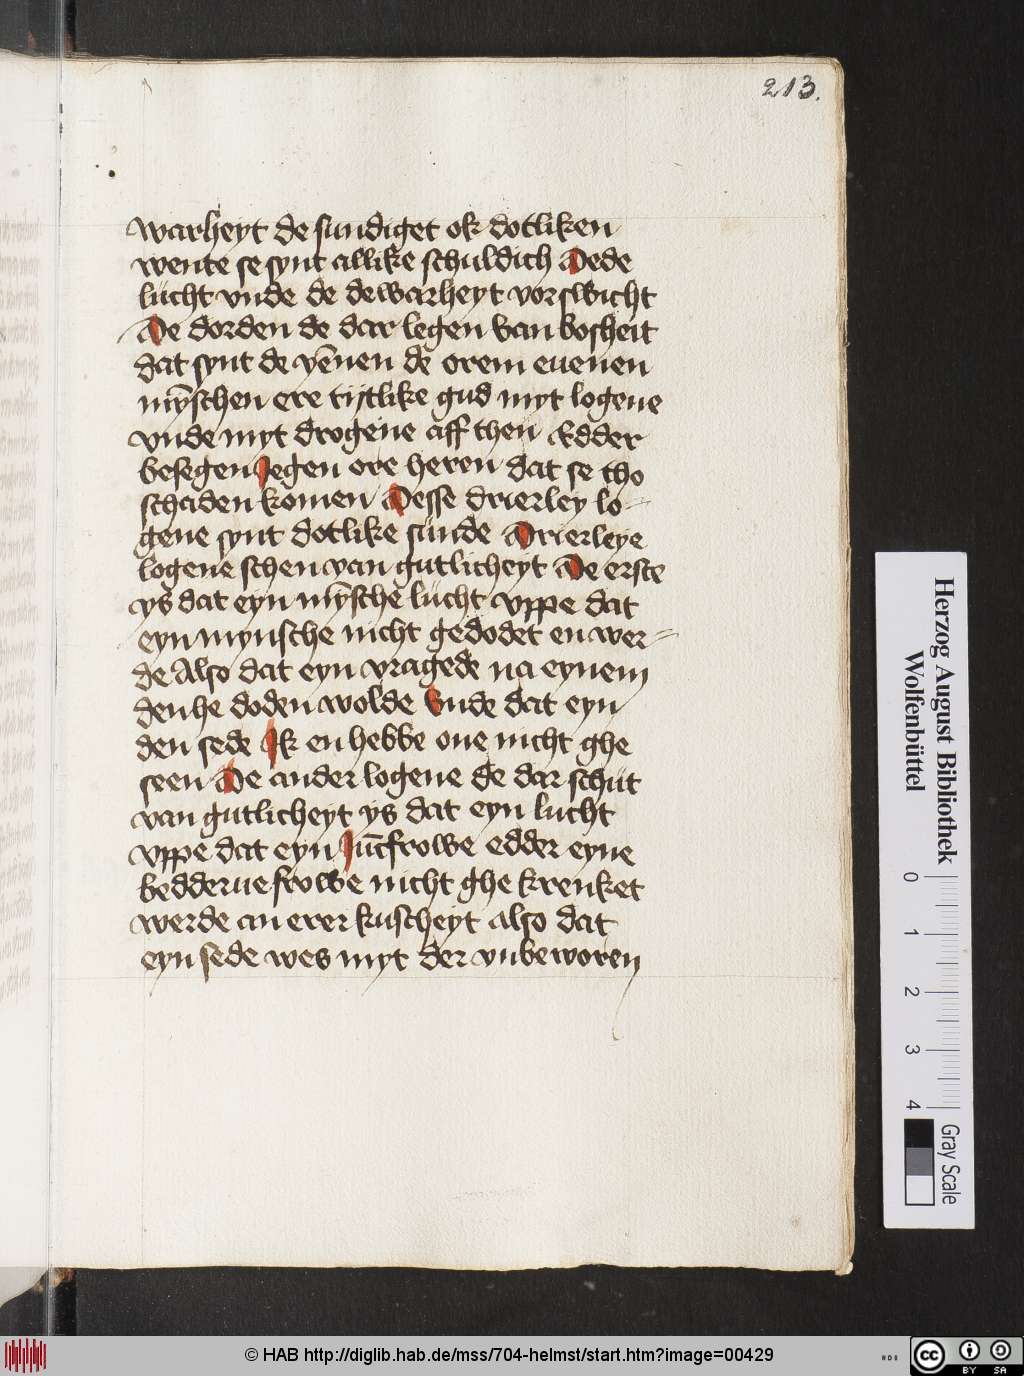 213.
warheyt de sundiget ok dotliken
wente se synt allike schuldich De de
lucht vnde de de warheyt vorswicht
De dorden de dar legen van bosheit
dat synt de yēnen de orem euenen
mȳschen ere tijtlike gud myt logene
vnde myt drogene aff then Edder
besegen Jegen ore heren dat se tho
schaden komen Desse drierley lo-
gene synt dotlike sunde Drierleye
logene schen van gutlicheyt De erste
ys dat eyn mȳsche lucht vppe dat
eyn mynsche nicht gedodet en wer-
de Also dat eyn vragede na eynem
den he doden wolde Vnde dat eyn
den sede Ik en hebbe one nicht ghe
seen De ander logene de dar schut
van gutlicheyt ys dat eyn lucht
vppe dat eyn Jūcfrowe edder eyne
bedderue frowe nicht ghe krenket
werde an erer kuscheyt also dat
eyn sede wes myt der vnbeworen
Herzog August Bibliothek
Wolfenbüttel
0 1 2 3 4
Gray Scale
© HAB http://diglib.hab.de/mss/704-helmst/start.htm?image=00429
cc BY SA